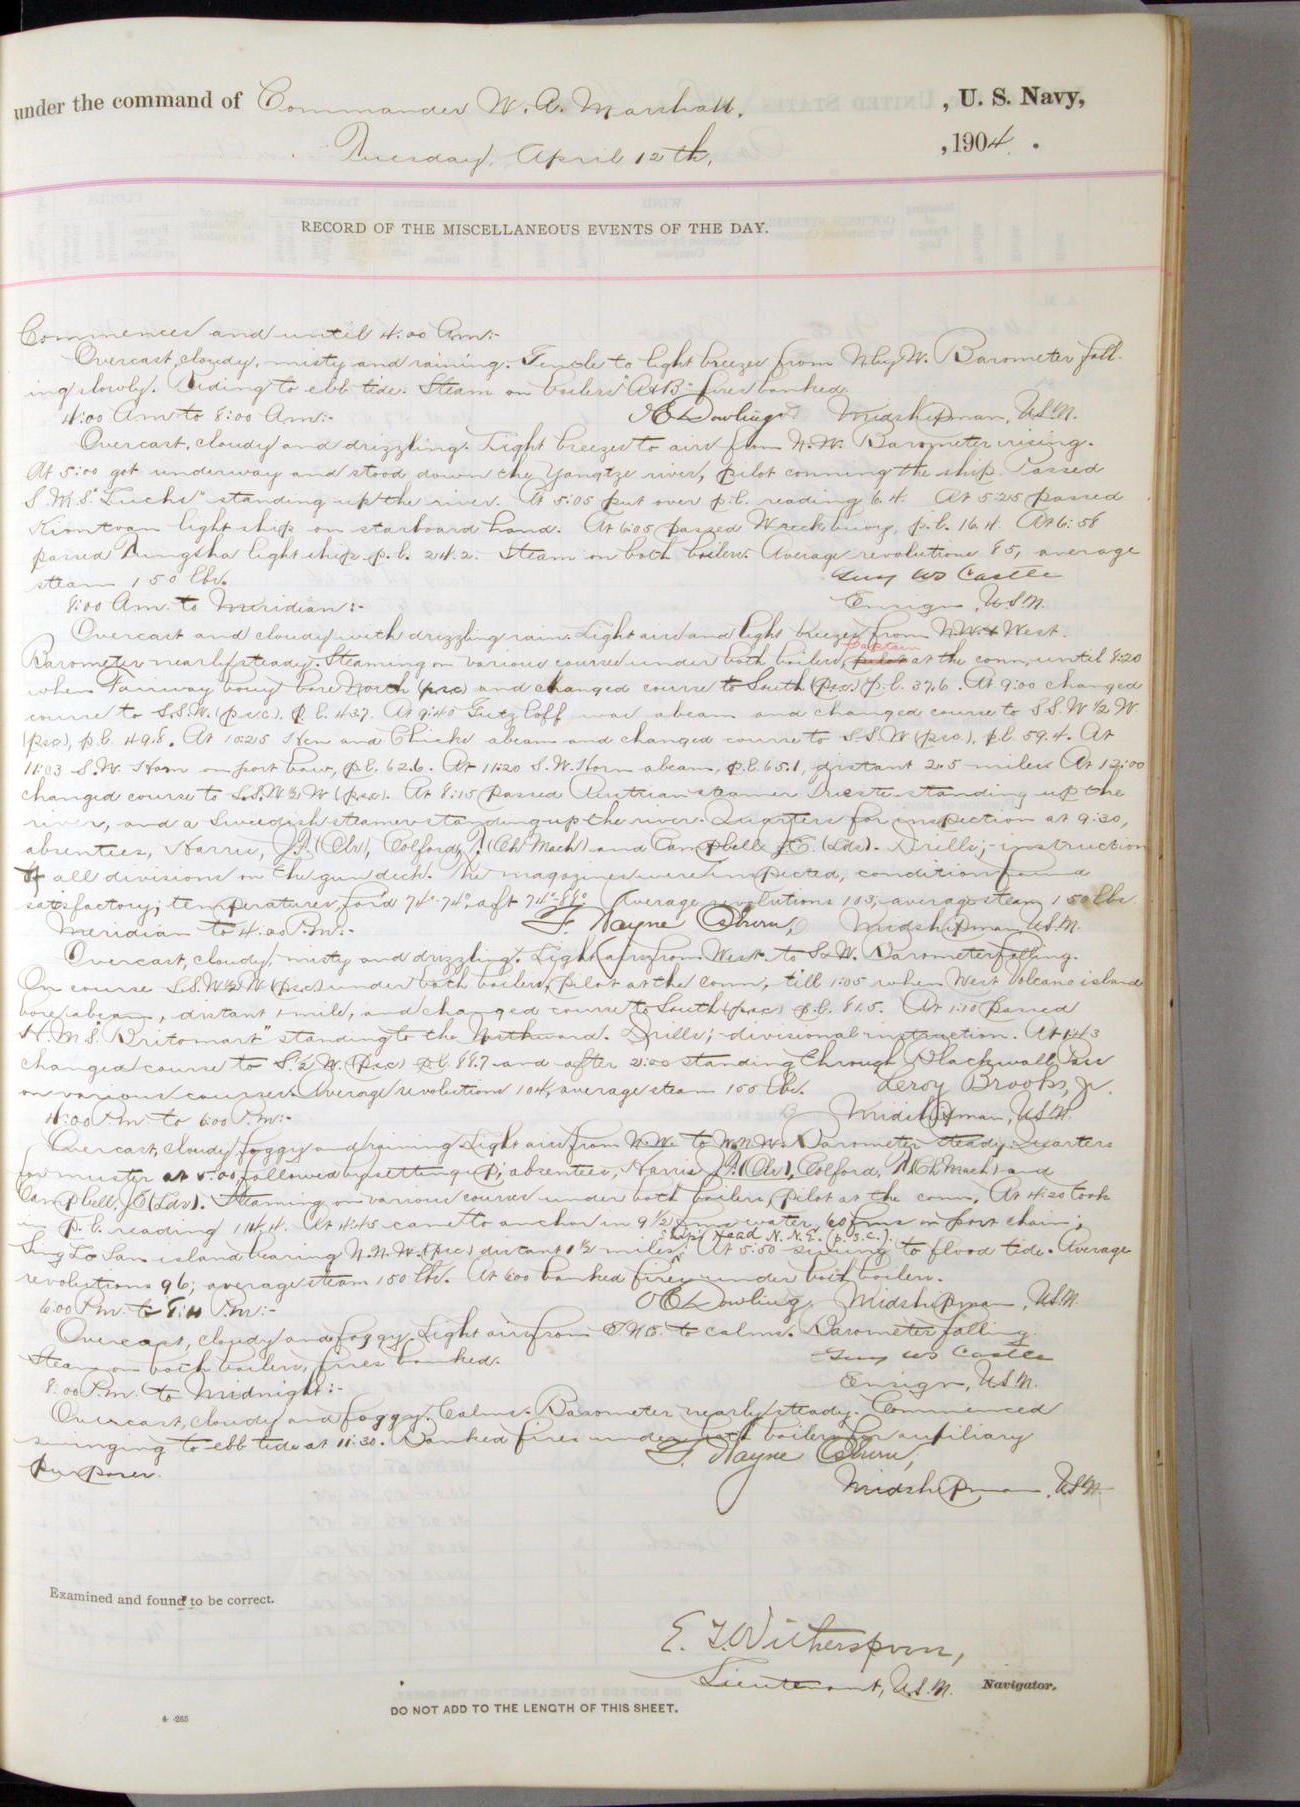 under the command of Commander W. A. Marshall, , U. S. Navy,
Tuesday, April 12th, , 1904 .
RECORD OF THE MISCELLANEOUS EVENTS OF THE DAY.
Commences and until 4:00 A.m.:-
Overcast, cloudy, misty and raining. Gentle to light breezes from N. by W. Barometer fall-
ing slowly. Riding to ebb tide. Steam on boilers "A & B" fires banked.
4:00 A.m. to 8:00 A.m.:- Dowling Midshipman, U.S.N.
Overcast, cloudy and drizzling. Light breezes to airs from N.W. Barometer rising.
At 5:00 got underway and stood down the Yangtze river, pilot conning the ship. Passed
S.M.S. "Luchs" standing up the river. At 5:05 put over p.l. reading 6.4. At 5:25 passed
light ship on starboard hand. At 6:05 passed Wreck buoy, p.l. 16.4. At 6:58
passed Tungsha light ship p.l. 24.2. Steam on both boilers. Average revolutions 85, average
steam 150 lbs. Guy W S Castle
8:00 A.m. to Meridian:- Ensign, U.S.N.
Overcast and cloudy with drizzling rain. Light airs and light breezes from N.W. & West.
Captain
Barometer nearly steady. Steaming on various courses under both boilers, pilot at the conn, until 8:20
when Fairway bouy bore North (p.s.c.) and changed course to South (p.s.c.) p.l. 37.6. At 9:00 changed
course to S.S.W. (p.s.c.). p.l. 43.7. At 9:40 Gutzlaff was abeam and changed course to S.S.W 1/2 W.
(p.s.c.), p.l. 49.8. At 10:25 Hen and Chicks abeam and changed course to S-S-W (p.s.c.). p.l. 59.4. At
11:03 S.W. Horn on port bow, p.l. 62.6. At 11:20 S.W. Horn abeam, p.l. 65.1, distant 2.5 miles. At 12:00
changed course to S.S.W 1/2 W (p.s.c.). At 8:15 passed Austrian steamer Trieste standing up the
river, and a Swedish steamer standing up the river. Quarters for inspection at 9:30,
absentees, Harris, J.P. (Clr), Colford, P. (Ch Mach) and Campbell J.E. (Lds). Drills;- instruction
of all divisions on the gun deck. The magazines were inspected, condition found
satisfactory; temperatures, for'd 74°-74°, aft 74°-86°. Average revolutions 103, average steam 150 lbs.
Meridian to 4:00 P.m.:- F. Wayne Osburn, Midshipman U.S.N.
Overcast, cloudy, misty and drizzling. Light airs from West to S.W. Barometer falling.
On course S.S.W 1/2 W (p.s.c.) under both boilers, pilot at the conn, till 1:05 when West Volcano island
bore abeam, distant 1 mile, and changed course to South (p.s.c.) p.l. 81.5. At 1:10 passed
H.M.S. "Britomart" standing to the Northward. Drills;- divisional instruction. At 1:43
changed course to S. 1/2 W. (p.s.c.) p.l. 88.7 and after 2:00 standing through Blackwall Pass
on various courses. Average revolutions 104, average steam 155 lbs. Leroy Brooks, Jr.
4:00 P.m. to 6:00 P.m.:- Midshipman, U.S.N.
Overcast, cloudy foggy and raining. Light airs from N.W. to W.N.W. Barometer steady. Quarters
for muster at 5:00 followed by setting up; absentees, Harris J.P. (Clr), Colford, P. (Ch Mach) and
Campbell, J.E. (Lds). Steaming on various courses under both boilers, pilot at the conn. At 4:20 took
in p.l. reading 114.4. At 4:45 came to anchor in 9 1/2 fms water, 60 fms on port chain;
ship's head N.N.E. (p.s.c.).
Sing Lo San island bearing N.N.W. (p.s.c.) distant 1 1/2 miles. At 5:50 swung to flood tide. Average
revolutions 96; average steam 150 lbs. At 6:00 banked fires under both boilers.
6:00 P.m. to 8:00 P.m.:- Dowling, Midshipman, U.S.N.
Overcast, cloudy and foggy. Light airs from E.N.E. to calms. Barometer falling.
Steam on both boilers, fires banked. Guy W S Castle
8:00 P.m. to Midnight:- Ensign, U.S.N.
Overcast, cloudy and foggy. Calms. Barometer nearly steady. Commenced
swinging to ebb tide at 11:30. Banked fires under both boilers for auxiliary
purposes. F. Wayne Osburn,
Midshipman, U.S.N.
Examined and found to be correct.
E. T. Witherspoon,
Lieutenant, U.S.N. Navigator.
DO NOT ADD TO THE LENGTH OF THIS SHEET.